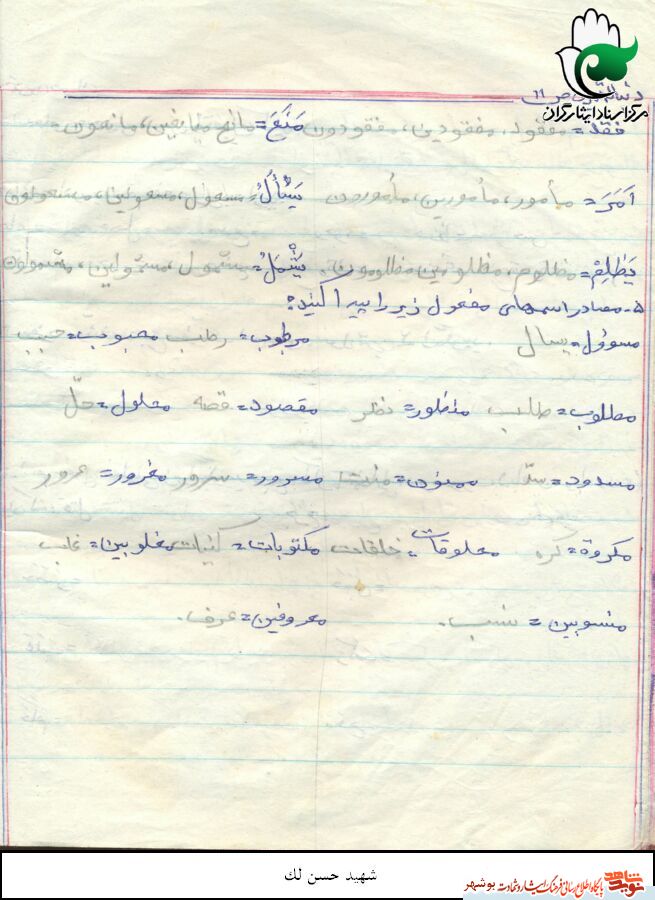 دنبالهٔ تمرین ص ۱۱
مرکز اسناد ایثارگران
فقد = مفقود، مفقودین، مفقودون مَنَعَ = مانع مانعین، مانعون
اَمَرَ = مأمور، مأمورین، مأمورون یَسْأَلُ = مسئول، مسئولین، مسئولون
یَظْلِمُ = مظلوم، مظلومین، مظلومون. یَشْمَلُ = مشمول، مشمولین، مشمولون
۵- مصادر اسمهای مفعول زیر را پیدا کنید:
مسوؤل = یسال مرطوب = رطب محبوب = حبب
مطلوب = طلب منظور = نظر مقصود = قصد محلول = حلّ
مسدود = سدّ ممنون = منت مسرور = سرور مغرور = غرور
مکروة = کره مخلوقات = خلقات مکتوبات = کتبات مغلوبین = غلب
منسوبین = نسب. معروفین = عرف.
شهید حسن لك
نوید شاهد پایگاه اطلاع رسانی فرهنگ ایثار و شهادت بوشهر